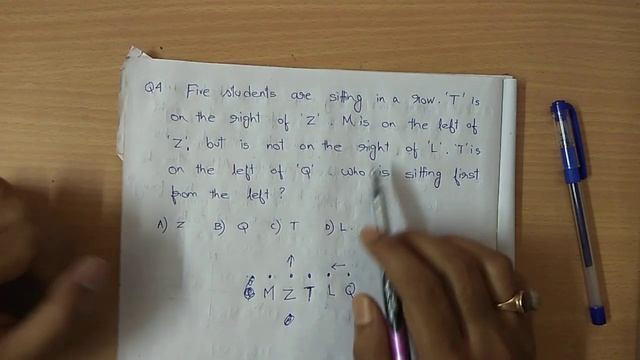 Q4 Five students are sitting in a row. 'T' is
on the right of 'Z'. M is on the left of
'Z', but is not on the right of 'L'. 'T' is
on the left of 'Q'. Who is sitting first
from the left?
A) Z B) Q C) T D) L.
M Z T L Q